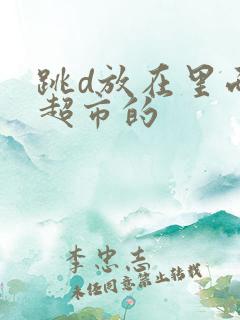 跳d放在里面
超市的
李忠志
未经同意禁止转载